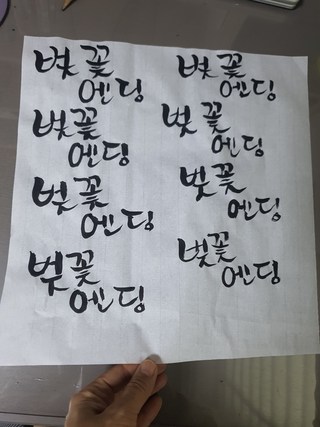 벚꽃
엔딩
벚꽃
엔딩
벚꽃
엔딩
벚꽃
엔딩
벚꽃
엔딩
벚꽃
엔딩
벚꽃
엔딩
벚꽃
엔딩